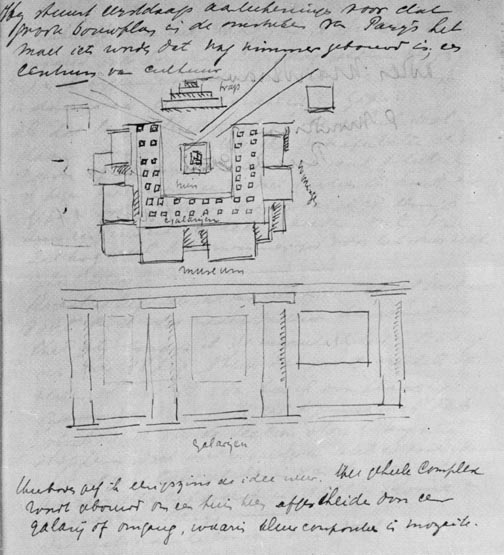 Hij stuurt eerstdaags aanteekeningen voor dat
groote bouwplan in de omstreken van Parijs het
moet iets worden dat nog nimmer gebouwd is, een
centrum van cultuur
trap
tuin
galerijen
museum
galerijen
Hierboven geef ik eenigszins de idee weer. Het geheele Complex
wordt gebouwd om een tuin heen afgescheiden door een
galerij of omgang, waarin kleurcomposities in mozaiek.